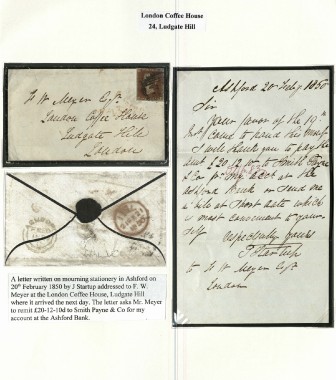 London Coffee House
24, Ludgate Hill
F. W. Meyer Esqr.
London Coffee House
Ludgate Hill
London
Ashford 20 Feby 1850
Sir
Your favor of the 19th
come to hand this
I will thank you to pay the
£20.12.10 to Smith Payne
& Co for my acct at the
Ashford Bank or send me
a bill at short date which
is most convenient to your
self
Respectfully yours
J Startup
to F W Meyer Esqr
London
A letter written on mourning stationery in Ashford on
20th February 1850 by J Startup addressed to F. W.
Meyer at the London Coffee House, Ludgate Hill
where it arrived the next day. The letter asks Mr. Meyer
to remit £20-12-10d to Smith Payne & Co for my
account at the Ashford Bank.